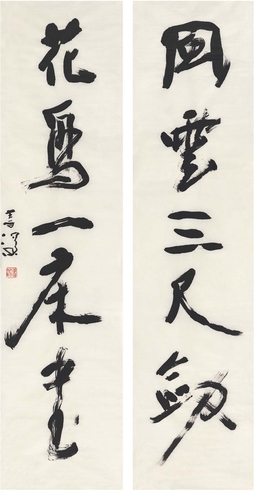 風雲三尺劍
花鳥一床書